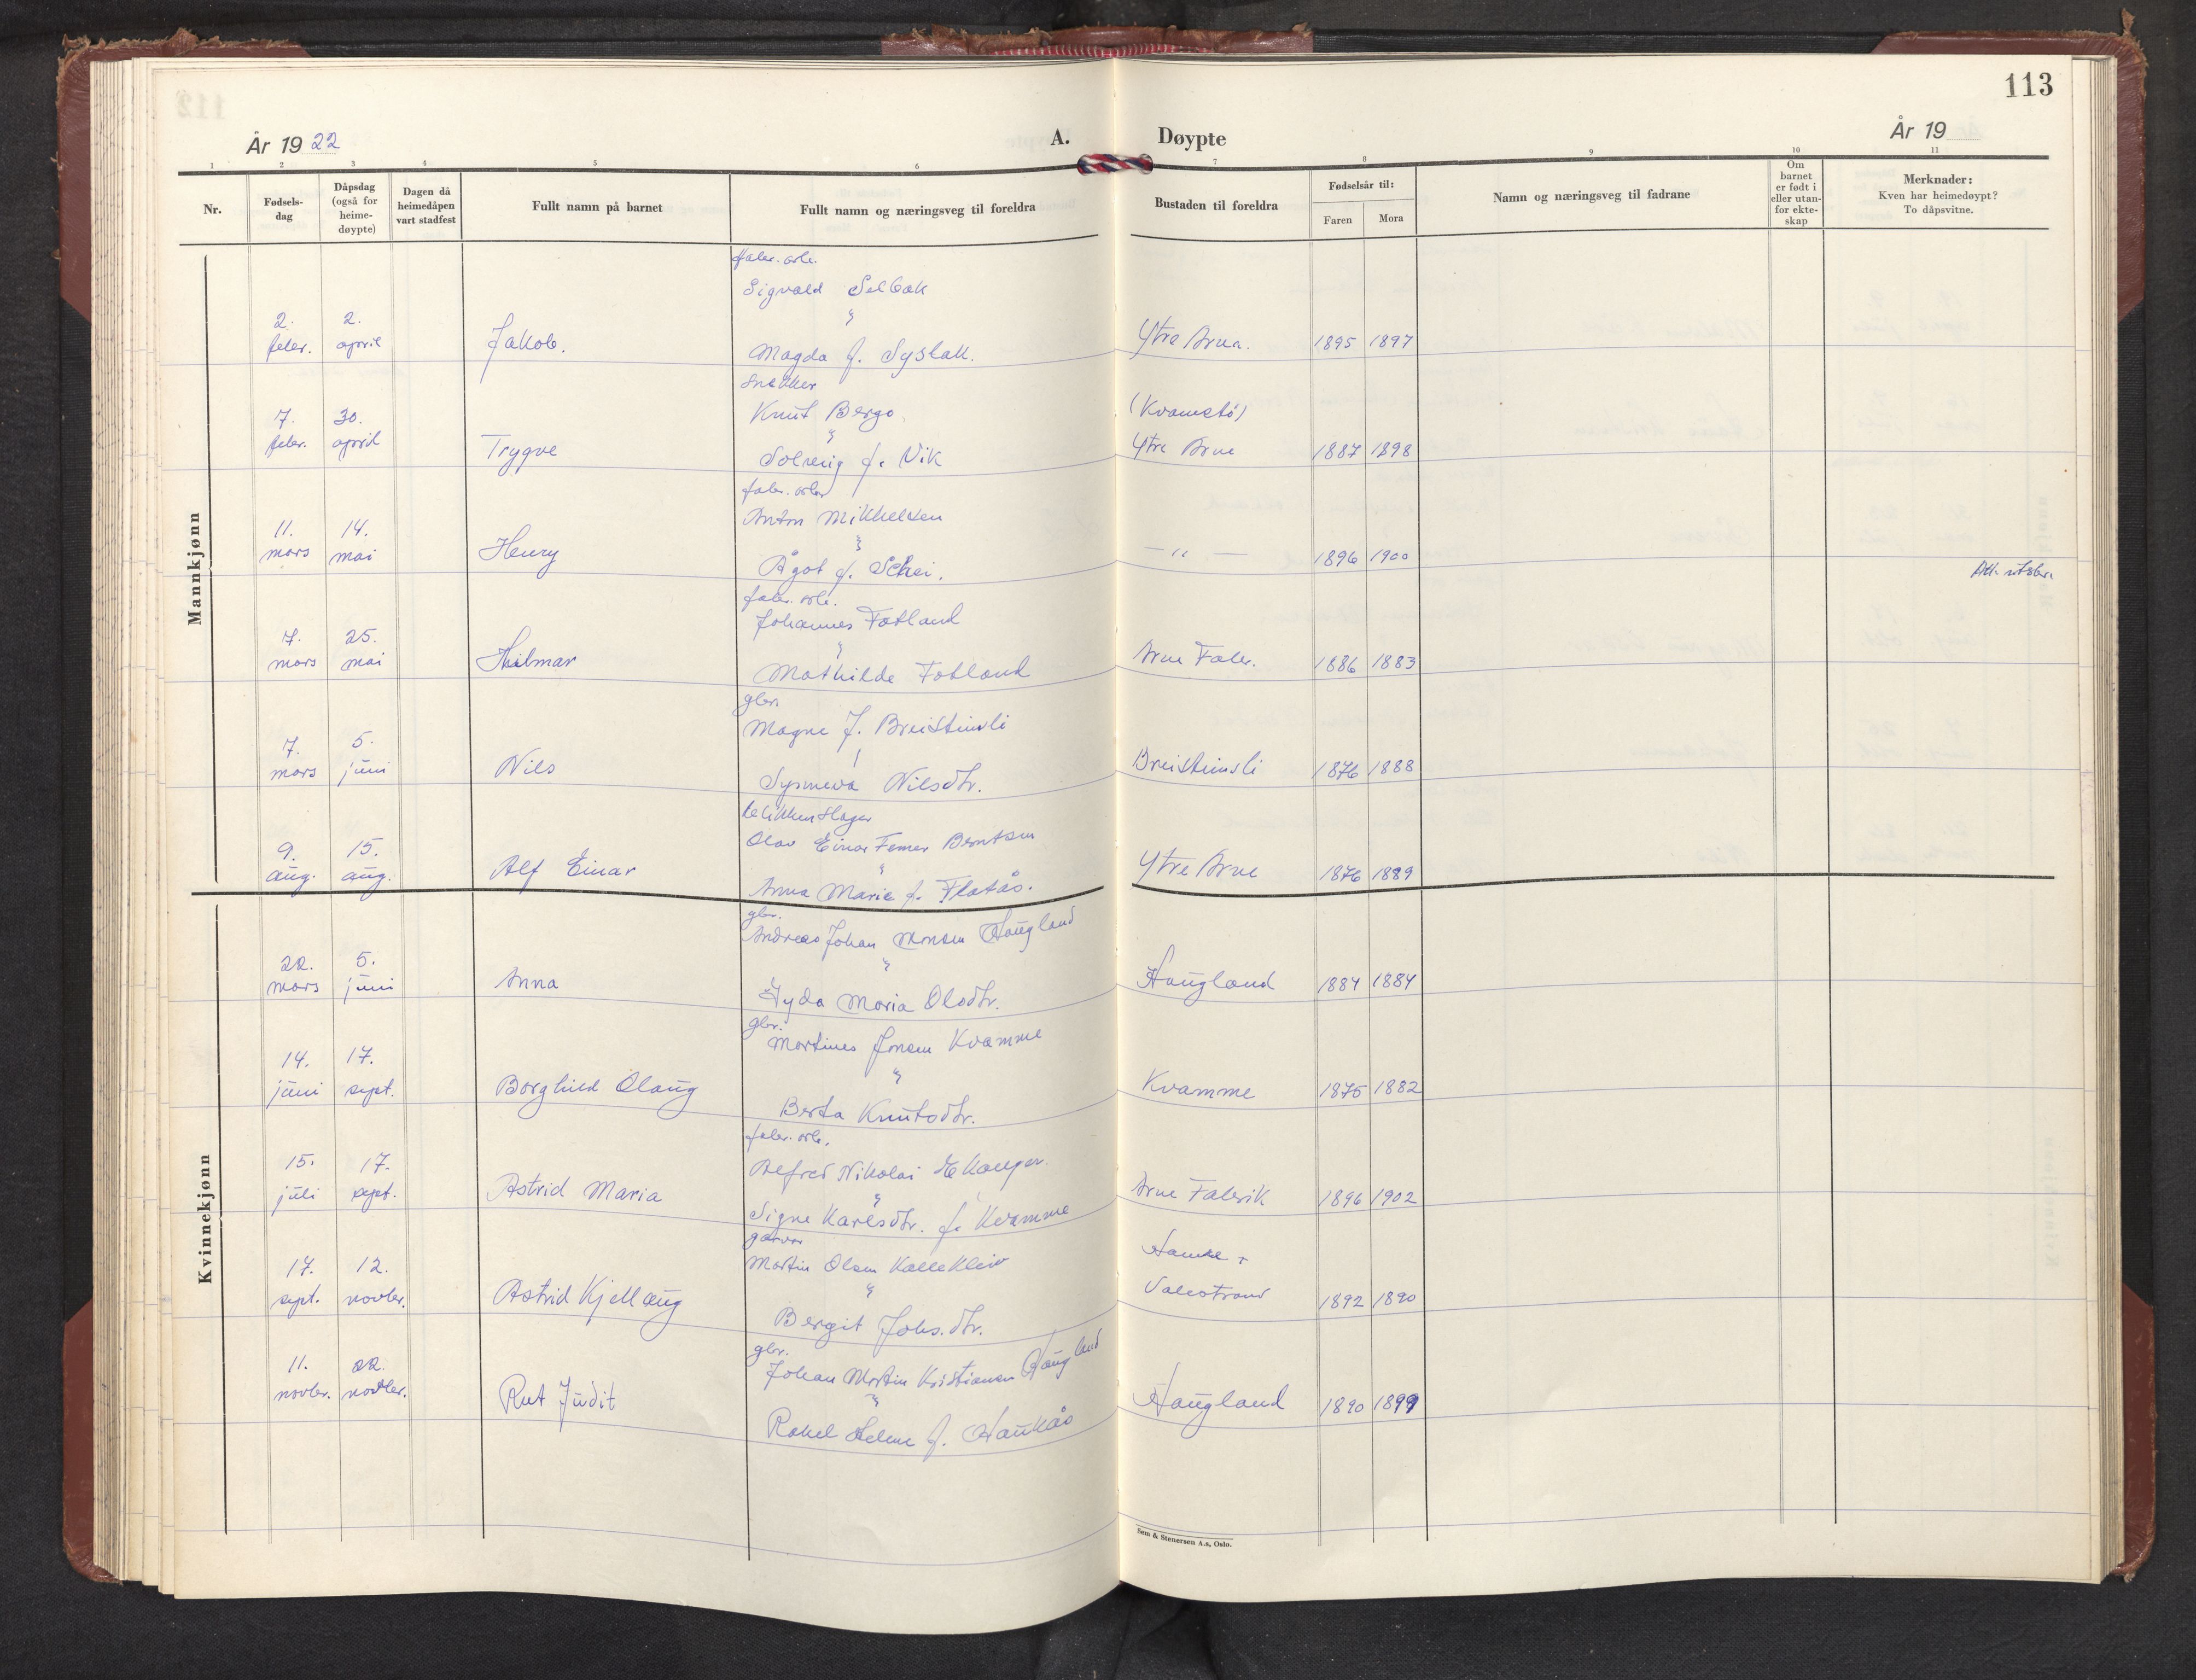 113
År 1922
A.
Døypte
År 19
1 2 3 4 5 6 7 8 9 10 11
Nr.
Fødsels-
dag
Dåpsdag
(også for
heime-
døypte)
Dagen då
heimedåpen
vart stadfest
Fullt namn på barnet
Fullt namn og næringsveg til foreldra
Bustaden til foreldra
Fødselsår til:
Faren Mora
Namn og næringsveg til fadrane
Om
barnet
er født i
eller utan-
for ekte-
skap
Merknader:
Kven har heimedøypt?
To dåpsvitne.
Mankjønn
fabr. arb.
Sigvald Selbak
"
2. 2.
febr. april Jakob. Magda f. Syslak. Ytre Arna. 1895 1897
snekker
Knut Bergo (Kvamstø)
7. 30. "
febr. april Trygve Solveig f. Vik Ytre Arne 1887 1898
fabr. arb.
Anton Mikkelsen
11. 14. "
mars mai Henry Ågot f. Schei. — " — 1896 1900
Att. utskr.
fabr. arb.
Johannes Fotland
7. 25. "
mars mai Hilmar Mathilde Fotland Arne Fabr. 1886 1883
gbr.
Magne J. Breisteinsli
7. 5.
mars juni Nils Synneva Nilsdtr. Breisteinsli 1876 1888
blikkenslager
Olav Einar Femer Berntsen
9. 15. "
aug. aug. Alf Einar Anna Marie f. Flatås. Ytre Arne 1876 1889
Kvinnekjønn
gbr.
Andreas Johan Monsen Haugland
22. 5. "
mars juni Anna Gyda Maria Olsdtr. Haugland 1884 1884
gbr.
Martines Jonsen Kvamme
14. 17. "
juni sept. Borghild Olaug Berta Knutsdtr. Kvamme 1875 1882
fabr. arb.
Alfred Nikolai Ekanger
15. 17. "
juli sept. Astrid Maria Signe Karlsdtr. f. Kvamme Arne Fabrik 1896 1902
garver
Martin Olsen Kallekleiv
17. 12. "
sept. novbr. Astrid Kjellaug Bergit Johs.dtr. Valestrand 1892 1890
gbr.
Johan Martin Kristiansen Haugland
11. 22. "
novbr. novbr. Rut Judit Rakel Helene f. Haukås Haugland 1890 1899
Sem & Stenersen A.s, Oslo.